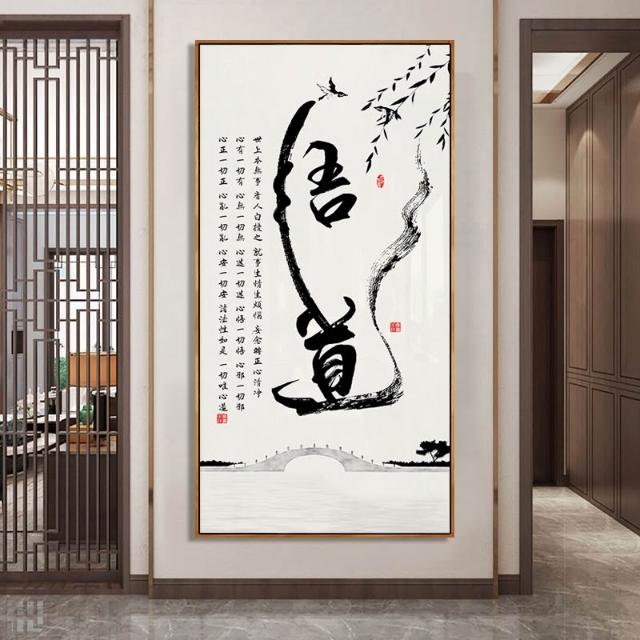 悟道
世上本無事 人自擾之 就事生情生煩惱 妄念 正心清净
心有一切有 心無一切無 心迷一切迷 心悟一切悟 心邪一切邪
心正一切正 心亂一切亂 心安一切安 諸法性如是 一切唯心造